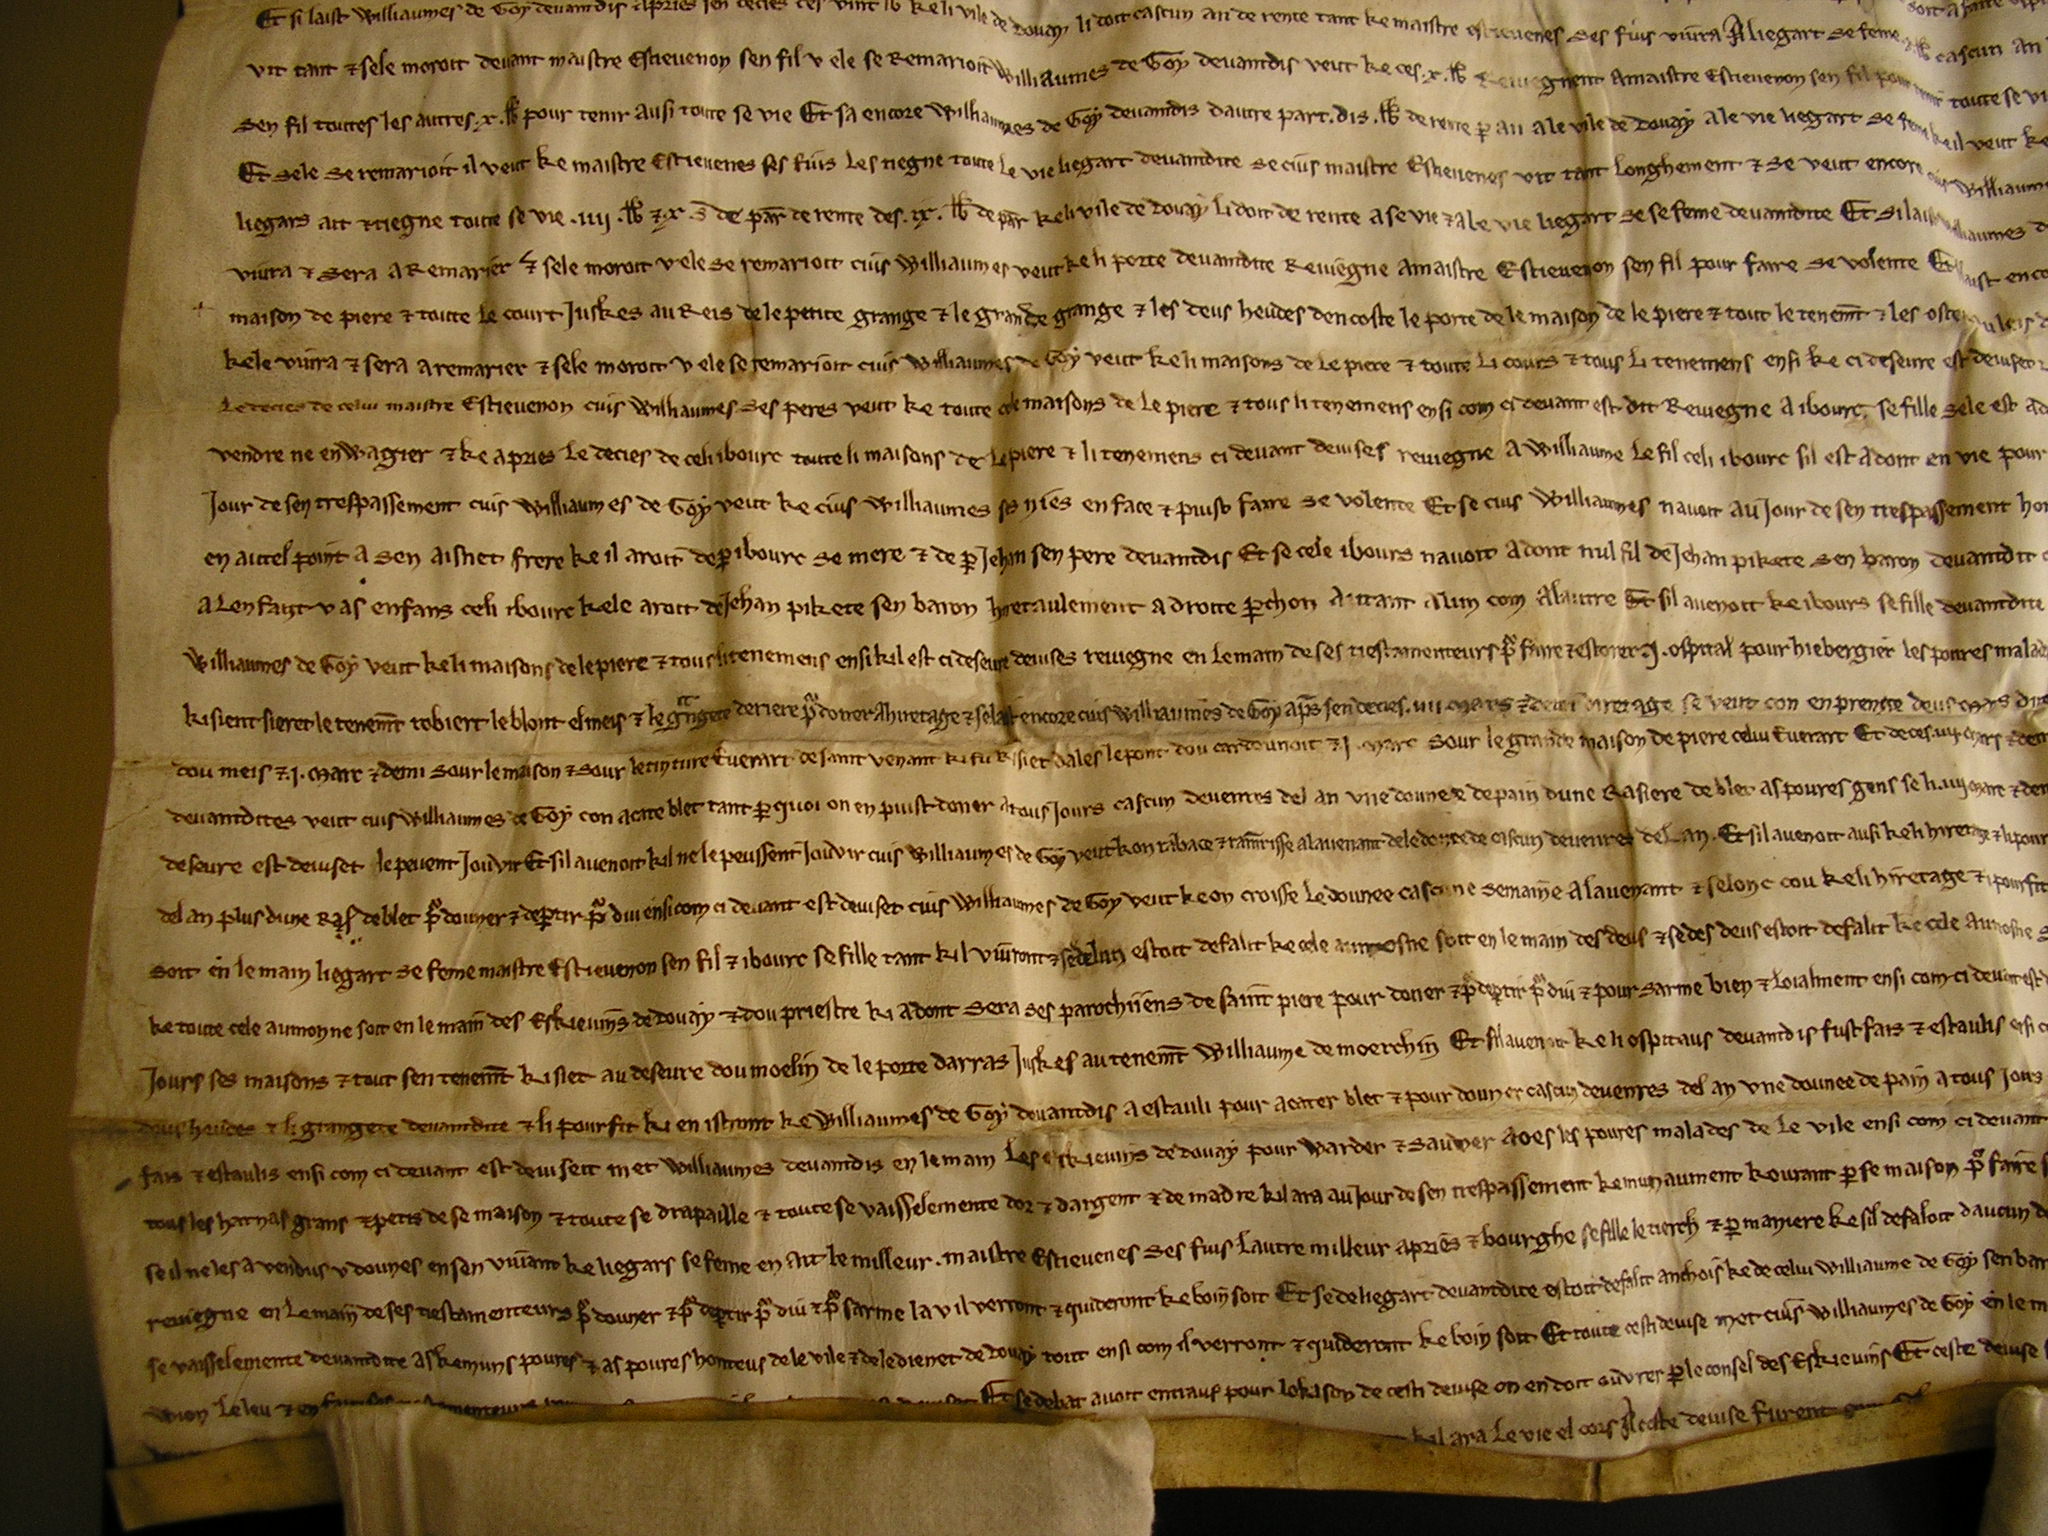 Et si laist Williaumes de Goy devantdis apries sen decies ces vint lb ke li vile de Douay li doit cascun an de rente tant ke maistre estievenes ses fius vivra A liegart se feme cascun an
vit tant & sele moroit devant maistre Estievenon sen fil v ele se Remarioit Williaumes de Goy devantdis veut ke ces .x. lb Reviegnent A maistre Estievenon sen fil pour tenir toute se vi
sen fil toutes les autres .x. lb pour tenir ausi toute se vie Et sa encore Williaumes de Goy devantdis dautre part .dis. lb de rente p an a le vile de Douay a le vie liegart se feme ke il veut ke
Et sele se remarioit il veut ke maistre Estievenes ses fius les tiegne toute le vie liegart devantdite se cius maistre Estievenes vit tant longhement & se veut encore cius Williaume
liegars ait & tiegne toute se vie .iiii. lb & .x. s de par de rente des .xx. lb de par ke li vile de Douay li doit de rente a se vie & a le vie liegart se feme devantdite Et si laist Williaumes d
vivra & sera a Remarier & sele moroit v ele se remarioit cius Williaumes veut ke li porte devantdite Reviegne a maistre Estievenon sen fil pour faire se volente Et laist enco
maison de piere & toute le court Juskes au Reis de le petite grange & le grande grange & les deus heudes dencoste le porte de le maison de le piere & tout le tenemt & les
kele vivra & sera a remarier & sele moroit v ele se remarioit cius Williaumes de Goy veut ke li maisons de le piere & toute li cours & tous li tenemens ensi ke ci deseure est deviset
Le decies de celui maistre Estievenon cius Williaumes ses peres veut ke toute cele maisons de le piere & tous li tenemens ensi com ci devant est dit Reviegne A ibourc se fille sele est ad
vendre ne enwagier & ke apries le decies de celi ibourc toute li maisons de le piere & li tenemens ci devant devises reviegne A Williaume le fil celi ibourc sil est adont en vie pour
Jour de sen trespassement cuis Williaumes de Goy veut ke cius Williaumes ses nies en face & puist faire se volente Et se cius Williaumes navoit au Jour de sen trespassement hoi
en autel point a sen aisnet frere ke il aroit de p ibourc se mere & de p Jehan sen pere devantdis Et se cele ibours navoit adont nul fil de Jehan pikete sen baron devantdit
a lenfant v as enfans celi ibourc kele aroit de Jehan pikete sen baron hiretaulement a droite pchon Autant a lun com a lautre Et sil avenoit ke ibours se fille devantdite
Williaumes de Goy veut ke li maisons de le piere & tous li tenemens ensi kil est ci deseure devises reviegne en le main de ses tiestamenteurs pr faire & estorer .I. ospital pour hiebergier les poures malad
ki sient sieret le tenemt robiert le blont el meis & le grangete deriere pr doner a hiretage & se laist encore cius Williaumes de Goy aps sen decies .iiii. mars & demi diretage se veut con en prenge deus mars
dou meis & .I. marc & demi sour le maison & sour le tinture Everart de saint venant ki fu ki siet dales le pont dou cardounoit & .I. marc sour le grande maison de piere celui Everart Et de ces .iiii. mars & dem
devantdites veut cius Williaumes de Goy con acate blet tant p quoi on en puist doner a tous Jours cascun devenres del an une dounee de pain dune Rasiere de blet as poures gens se li .iiii. marc & dem
deseure est deviset le pevent Jouvir Et sil avenoit kil ne le peussent Jouvir cius Williaumes de Goy veut kon rabace & ramenrisse a lavenant de le dounee de cascun devenres de lan . Et sil avenoit ausi ke li hiretage & li pour
del an plus dune Ras de blet pr douner & deptir pr diu ensi com ci devant est deviset cius Williaumes de Goy veut ke on croisse le dounee cascune semaine a lavenant & selonc cou ke li hiretage & li pourfit
soit en le main liegart se feme maistre Estievenon sen fil & ibourc se fille tant kil viveront & se de lun estoit defalit ke cele aumosne soit en le main des deus & se des deus estoit defalit ke cele aumosne
ke toute cele aumonne soit en le main des Eskievins de Douay & dou priestre ki adont sera ses parochiiens de saint piere pour doner & pr deptir pr diu & pour sarme bien & loialment ensi com ci devant est
Jours ses maisons & tout sen tenemt ki siet au deseure dou moelin de le porte darras Juskes au tenemt Williaume de moerchin Et sil avenoit ke li ospitaus devantdis fust fais & estaulis ensi
deus heudes & li grangete devantdite & li pourfit ki en istront ke Williaumes de Goy devantdis a estauli pour acater blet & pour douner cascun devenres del an une dounee de pain a tous Jours
fais & estaulis ensi com ci devant est deviseit met Williaumes devantdis en le main Les eskievins de Douay pour warder & sauver a oes les poures malades de le vile ensi com ci devant
tous les harnas grans & petis de se maison & toute se drapaille & toute se vaisselemente dor & dargent & de madre kil ara au Jour de sen trespassement kemunaument kourant p se maison pr faire
se il ne les a vendus v dounes en sen vivant ke liegars se feme en ait le milleur . maistre Estievenes ses fius lautre milleur apries & bourghe se fille le tierch & p maniere ke sil defaloit daucun de
reviegne en le main de ses tiestamenteurs pr douner & pr deptir pr diu & pr sarme la v il verront & quideront ke boin soit Et se de liegart devantdite estoit defalit anchois ke de celui Williaume de Goy sen bar
se vaisselemente devantdite as kemuns poures & as poures honteus de le vile & de le dienet de Douay tout ensi com il verront & quideront ke boin soit Et toute cesti devise met cius Williaumes de Goy en le m
wion le leu & en Et se debat avoit entraus pour lokison de cesti devise on en doit ouvrer p le consel des Eskievins Et ceste devise
kil ara le vie el cors A ceste devise furent